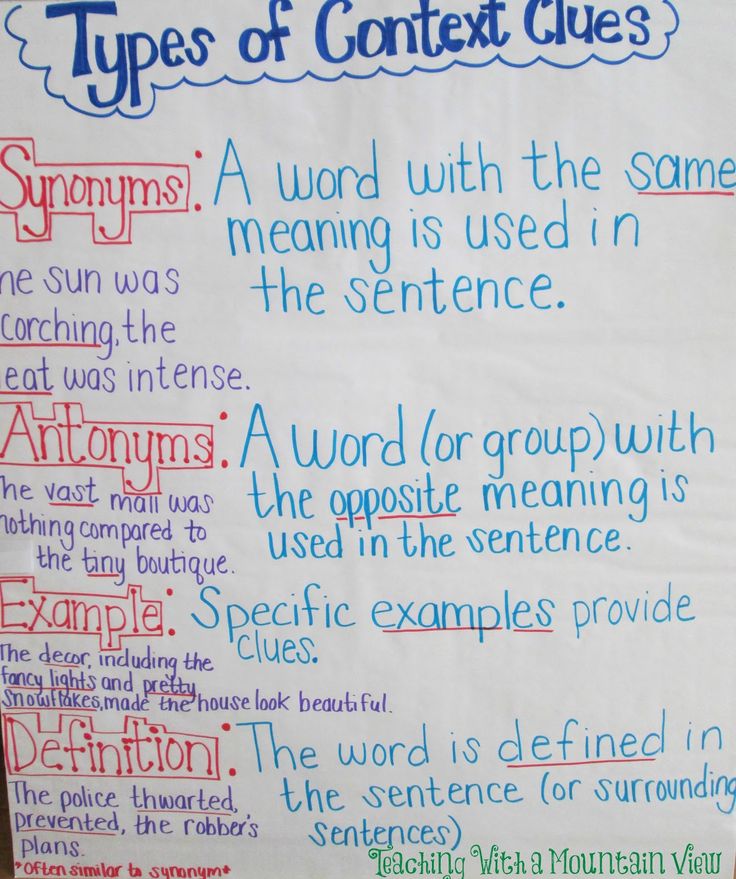 Types of Context Clues
Synonyms: A word with the same
meaning is used in
the sentence.
he sun was
corching, the
eat was intense.
Antonyms: A word (or group) with
the opposite meaning is
used in the sentence.
he vast mall was
nothing compared to
the tiny boutique.
Example: Specific examples provide
clues.
The decor, including the
fancy lights and pretty
snowflakes, made the house look beautiful.
Definition: The word is defined in
the sentence (or surrounding
sentences)
The police thwarted,
prevented, the robber's
plans.
*Often similar to synonym*
Teaching With a Mountain View